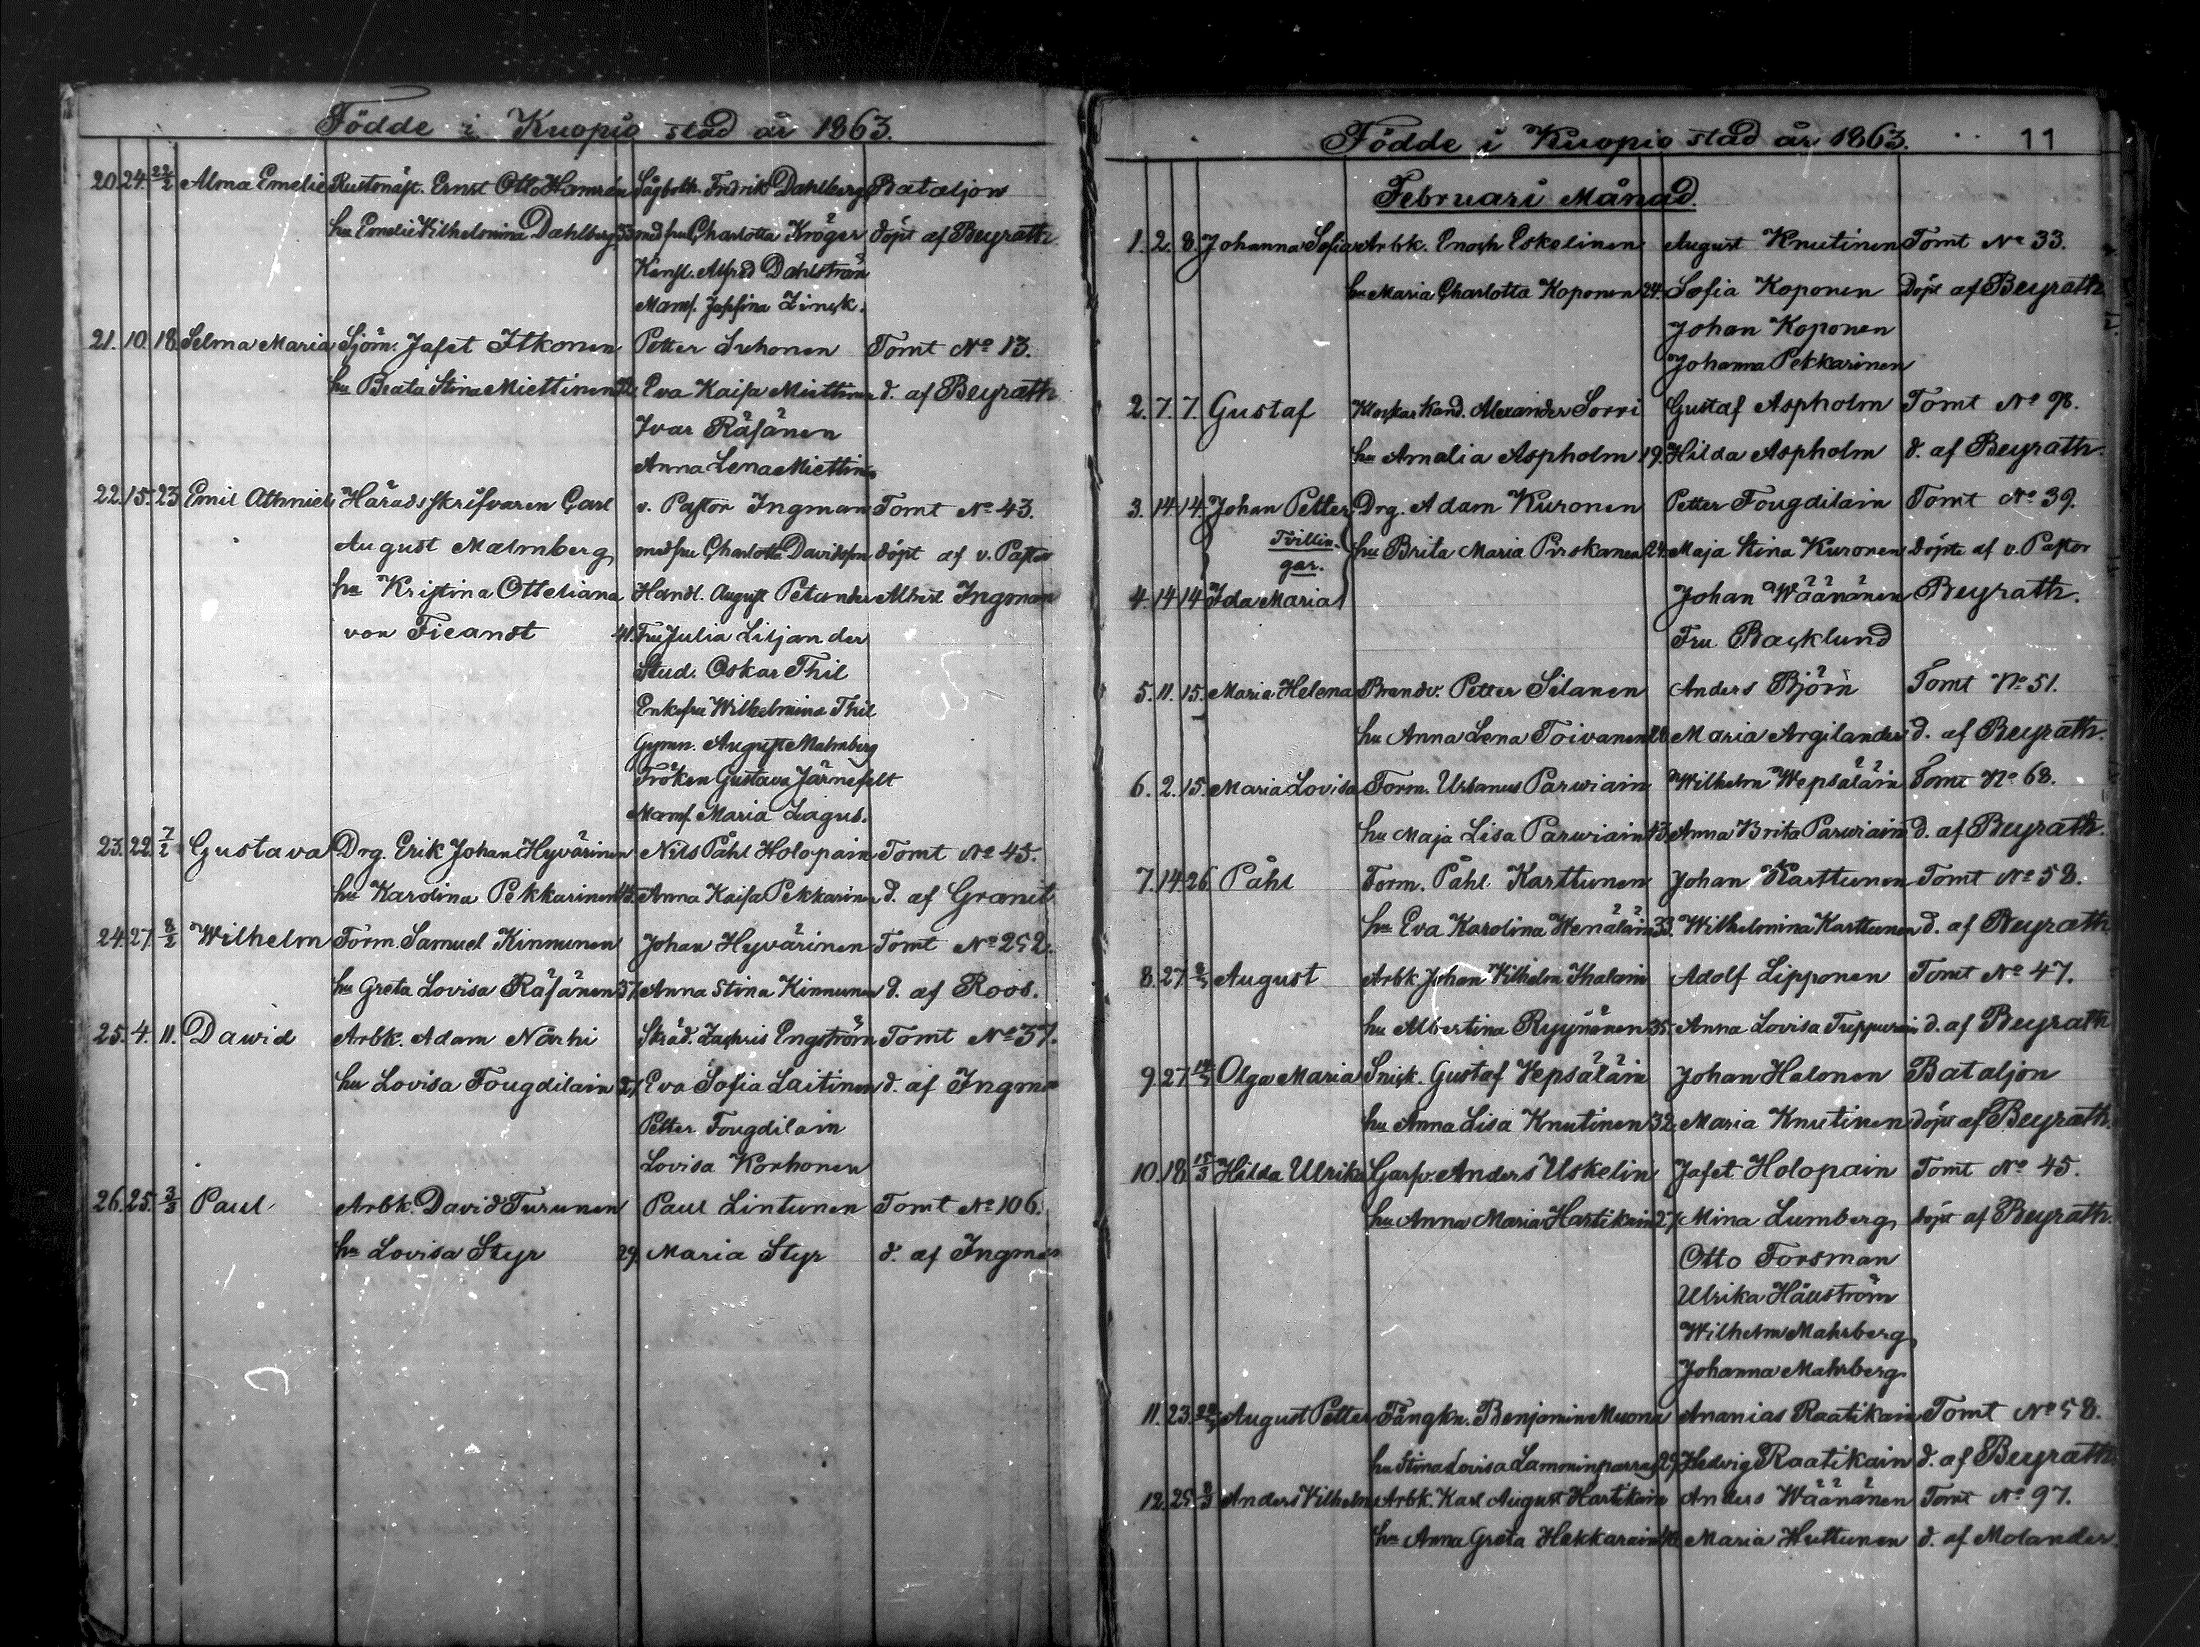 Födde i Kuopio stad år 1863.
20. 24. 22/2 Alma Emelie Rustmäst. Ernst Otto Hamrén Fredrik Dahlberg Bataljon
hu Emelie Vilhelmina Dahlberg 33 med fru Charlotta Kröger döpt af Beyrath
Kansl. Alfred Dahlström
Mams. Josefina Zinck.
21. 10. 18. Selma Maria Sjöm. Jafet Itkonen Petter Suhonen Tomt No 13.
hu Brata Stina Miettinen Eva Kaisa Miettinen d. af Beyrath
Ivar Räsänen
Anna Lena Miettinen
22. 15. 23. Emil Athniel Häradsskrifvaren Carl v. Pastor Ingman Tomt No 43.
August Malmberg med fru Charlotta Davidsson döpt af v. Pastor
hu Kristina Otteliana Handl. August Petander Albert Ingman
von Fieandt 41. Fru Julia Liljander
Stud. Oskar Thil
Enkefru Wilhelmina Thil
Gymn. August Malmberg
Fröken Gustava Järnefelt
Mams. Maria Lagus.
23. 22. 7/2 Gustava Drg. Erik Johan Hyvärinen Nils Påhl Holopain Tomt No 45.
hu Karolina Pekkarinen 45. Anna Kaisa Pekkarinen d. af Granit
24. 27. 8/2 Wilhelm Torm. Samuel Kinnunen Johan Hyvärinen Tomt No 252.
hu Greta Lovisa Räsänen 37. Anna Stina Kinnunen d. af Roos.
25. 4. 11. Dawid Arbk. Adam Närhi Skräd. Zachris Engström Tomt No 37.
hu Lovisa Fougdilain 27. Eva Sofia Laitinen d. af Ingman
Petter Fougdilain
Lovisa Korhonen
26. 25. 3/3 Paul Arbk. David Turunen Paul Lintunen Tomt No 106.
hu Lovisa Styr 29. Maria Styr d. af Ingman
Födde i Kuopio stad år 1863. 11
Februari Månad
1. 2. 8. Johanna Sofia Arbk. Enoch Eskelinen August Knutinen Tomt No 33.
hu Maria Charlotta Koponen 24. Sofia Koponen Döpt af Beyrath
Johan Koponen
Johanna Pekkarinen
2. 7. 7. Gustaf Klockar Kand. Alexander Sorri Gustaf Aspholm Tomt No 98.
hu Amalia Aspholm 19. Hilda Aspholm d. af Beyrath.
3. 14. 14. Johan Petter Drg. Adam Kuronen Petter Fougdilain Tomt No 39.
Tvillin- hu Brita Maria Pirskanen 24. Maja Stina Kuronen Döpte af v. Pastor
gar.
4. 14. 14. Ida Maria Johan Wäänänen Beyrath.
Fru Backlund
5. 11. 15. Maria Helena Brandv. Petter Silanen Anders Björn Tomt No 51.
hu Anna Lena Toivanen 28. Maria Argilander d. af Beyrath.
6. 2. 15. Maria Lovisa Torm. Urbanus Parwiain Wilhelm Wepsäläin Tomt No 68.
hu Maja Lisa Parwiain 43. Anna Brita Parwiain d. af Beyrath.
7. 14. 26. Påhl Torm. Påhl Karttunen Johan Karttunen Tomt No 58.
hu Eva Karolina Wenäläin 33. Wilhelmina Karttunen d. af Beyrath
8. 27. August Arbk. Johan Vilhelm Ihalain Adolf Lipponen Tomt No 47.
hu Albertina Ryynänen 35. Anna Lovisa Tuppurain d. af Beyrath
9. 27. Olga Maria Snick. Gustaf Vepsäläin Johan Halonen Bataljon
hu Anna Lisa Knutinen 32. Maria Knutinen döpt af Beyrath.
10. 18. 15/3 Hilda Ulrika Garfv. Anders Uskelin Jafet Holopain Tomt No 45.
hu Anna Maria Hartikain 27. Mina Lumberg döpt af Beyrath.
Otto Forsman
Ulrika Häuström
Wilhelm Mahrberg
Johanna Mahrberg
11. 23. August Petter Fångkn. Benjamin Muona Ananias Raatikain Tomt No 58.
hu Stina Lovisa Lamminparras 29. Hedvig Raatikain d. af Beyrath
12. 25. 8/3 Anders Vilhelm Arbk. Karl August Hartikain Anders Wäänänen Tomt No 97.
hu Anna Greta Hakkarain Maria Huttunen d. af Molander.